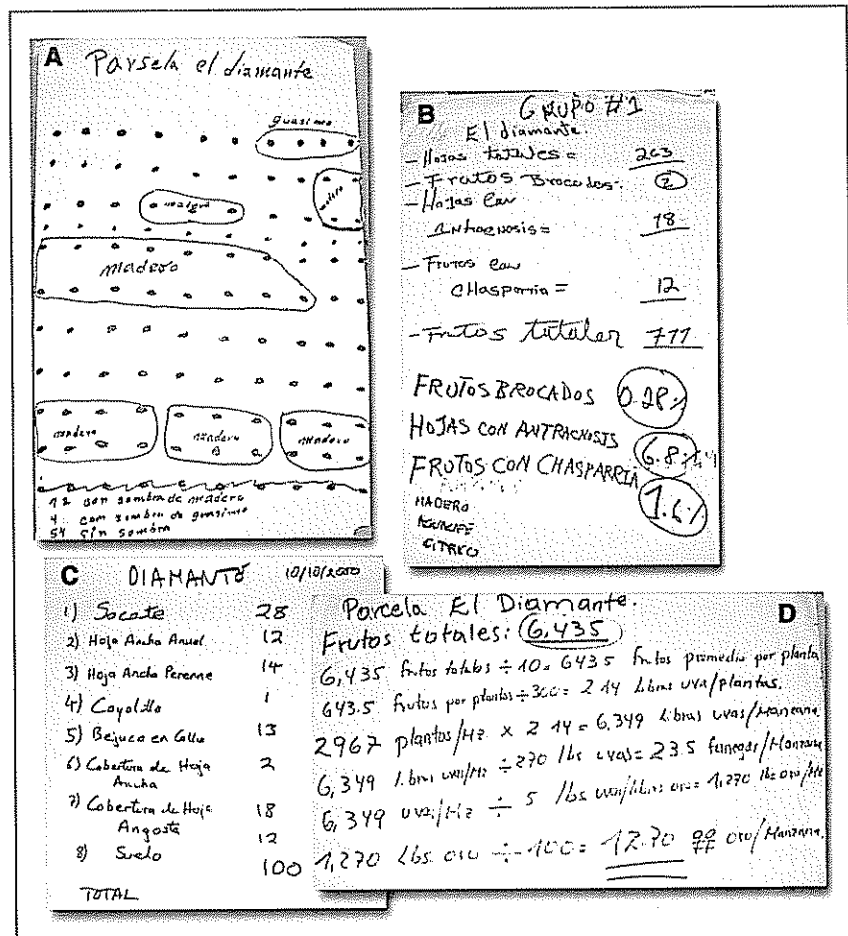 A
Parsela el diamante
guasimo
madero
madero
madero
madero
madero
42 con sombra de madero
4 con sombra de guasimo
54 sin sombra
B
GRUPO #1
El diamante.
- Hojas totales = 263
- Frutos Brocados: 2
- Hojas con
Antracnosis = 18
- Frutos con
CHasparria = 12
- Frutos totales 711
FRUTOS BROCADOS 0.28%
HOJAS CON ANTRACNOSIS 6.8%
FRUTOS CON CHASPARRIA 1.6%
MADERO
CITRICO
C
DIAMANTE 10/10/2000
1) Socate 28
2) Hoja Ancha Anual 12
3) Hoja Ancha Perenne 14
4) Coyolillo 1
5) Bejuco en Calle 13
6) Cobertura de Hoja 2
Ancha
7) Cobertura de Hoja 18
Angosta
8) Suelo 12
100
TOTAL
D
Parcela El Diamante.
Frutos totales: 6,435
6,435 frutos totales ÷ 10 = 643.5 frutos promedio por planta
643.5 frutos por plantas ÷ 300 = 2.14 Libras uva/plantas.
2967 plantas/Mz x 2.14 = 6,349 Libras uvas/Manzana.
6,349 Libras uvas/Mz ÷ 270 lbs uvas = 23.5 fanegas/Manzana
6,349 uvas/Mz ÷ 5 lbs uvas/libras oro = 1,270 lbs oro/Mz
1,270 Lbs oro ÷ 100 = 12.70 qq oro/Manzana.